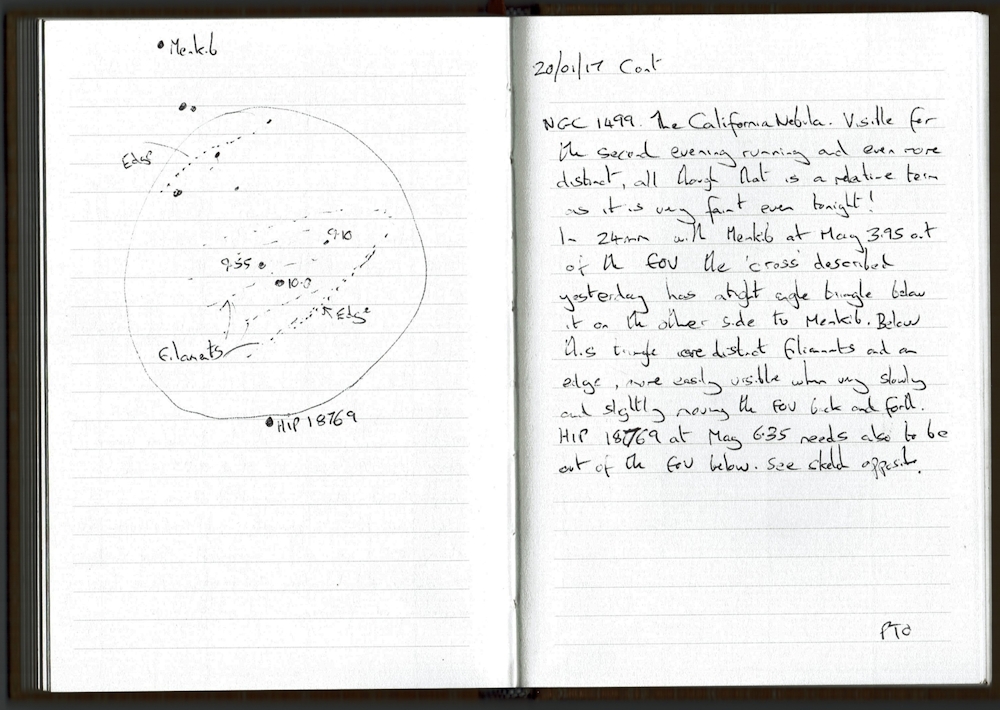 Menkib
Edge
9.10
9.35
10.0
Edge
Filaments
HIP 18769
20/01/17 Cont
NGC 1499. The California Nebula. Visible for
the second evening running and even more
distinct, all though that is a relative term
as it is very faint even tonight!
In 24mm with Menkib at Mag 3.95 out
of the FOV the 'cross' described
yesterday has a right angle triangle below
it on the other side to Menkib. Below
this triangle were distinct filiaments and an
edge, more easily visible when very slowly
and slightly moving the FOV back and forth.
HIP 18769 at Mag 6.35 needs also to be
out of the FOV below. See sketch opposite.
PTO